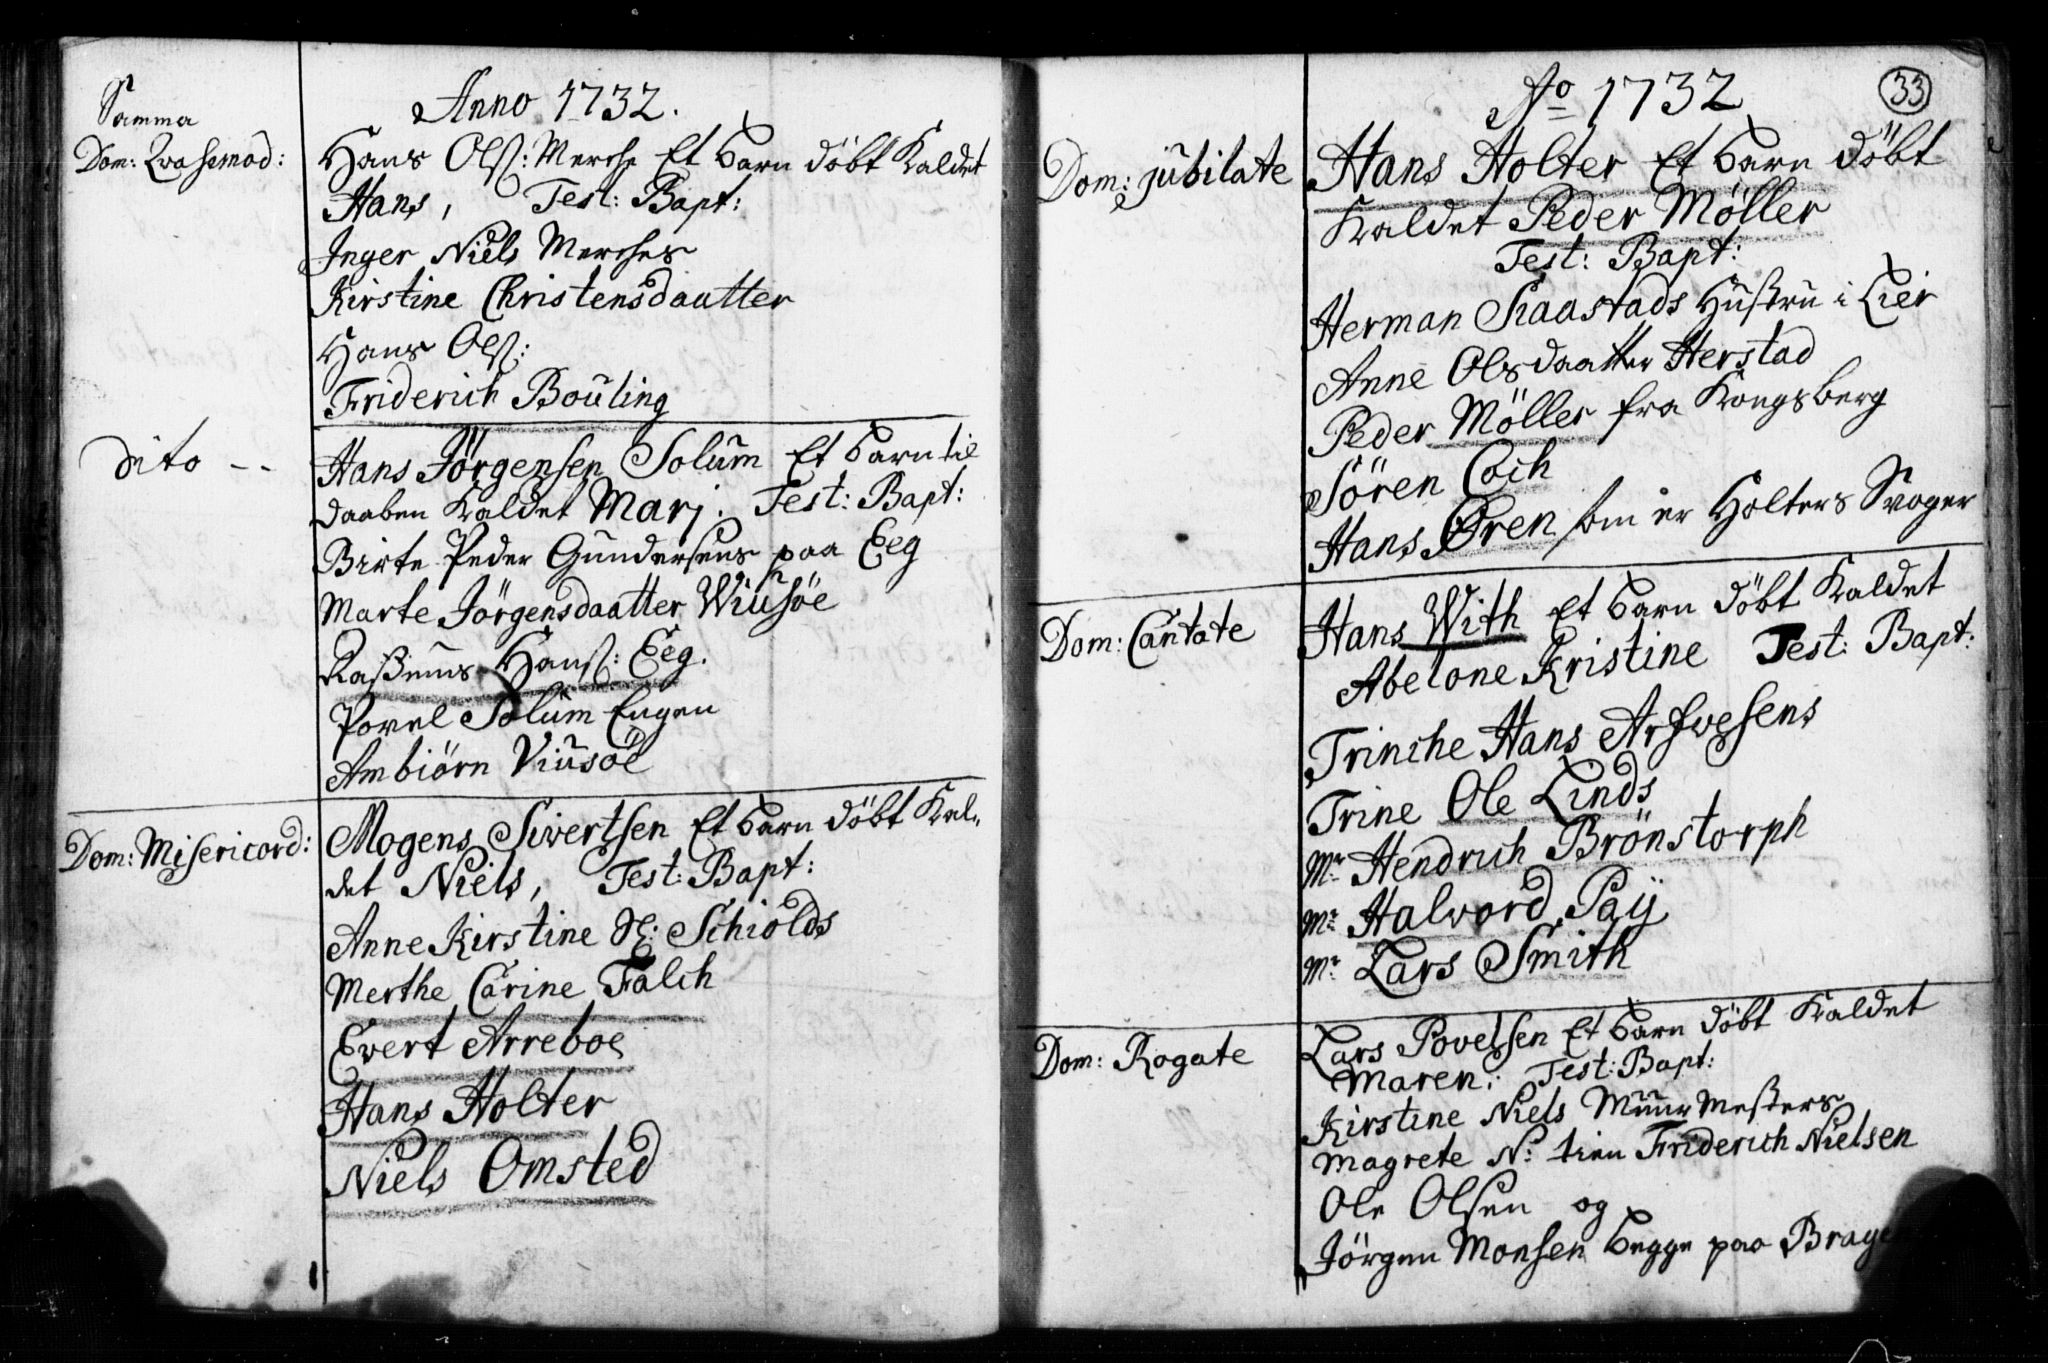 Anno 1732.
Samma
Dom: Qvasimod:
Hans Olß: Merche Et barn döbt Kaldet
Hans, Test: Bapt:
Inger Niels Merches
Kirstine Christensdaatter
Hans Olß:
Friderich Bouling
Dito --
Hans Jörgensen Solum Et barn til
daaben Kaldet Marj. Test: Bapt:
Birte Peder Gundersens paa Eeg
Marte Jörgensdaatter Wiusöe
Raßmus Hanß: Eeg.
Povel Solum Eugen
Ambiörn Viusöe
Dom: Misericord:
Mogens Sivertsen Et barn döbt Kal„
det Niels, Test: Bapt:
Anne Kirstine Schiolds
Merthe Carine Falch
Evert Arreboe
Hans Holter
Niels Omsted
33
Ao 1732
Dom: jubilate
Hans Holter Et barn döbt
Kaldet Peder Møller
Test: Bapt:
Herman Skaastads Hustru i Lier
Anne Olsdaatter Herstad
Peder Möller fra Kongsberg
Sören Coch
Hans Ören som er Holters Svoger
Dom: Cantate
Hans With Et barn döbt Kaldet
Abelone Kristine Test: Bapt:
Trinche Hans Arfwesens
Trine Ole Linds
Mr Hendrich Brönstorph
Mr Halvord Paÿ
Mr Lars Smith
Dom: Rogate
Lars Povelsen Et barn döbt Kaldet
Maren, Test: Bapt:
Kirstine Niels MuurMesters
Magrete N: tien Friderich Nielsen
Ole Olsen og
Jörgen Monsen begge paa Brage